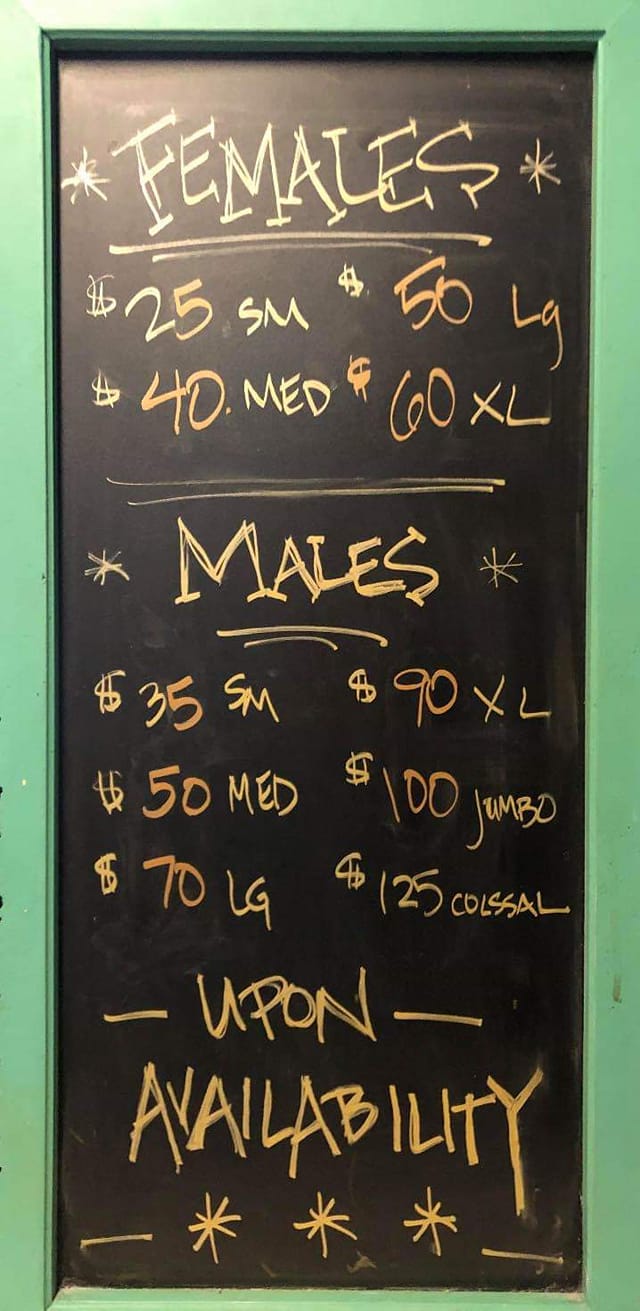 * FEMALES *
$25 SM $50 Lg
$40. MED $60 XL
* MALES *
$35 SM $90 XL
$50 MED $100 JUMBO
$70 LG $125 COLSSAL
— UPON —
AVAILABILITY
— * * * —